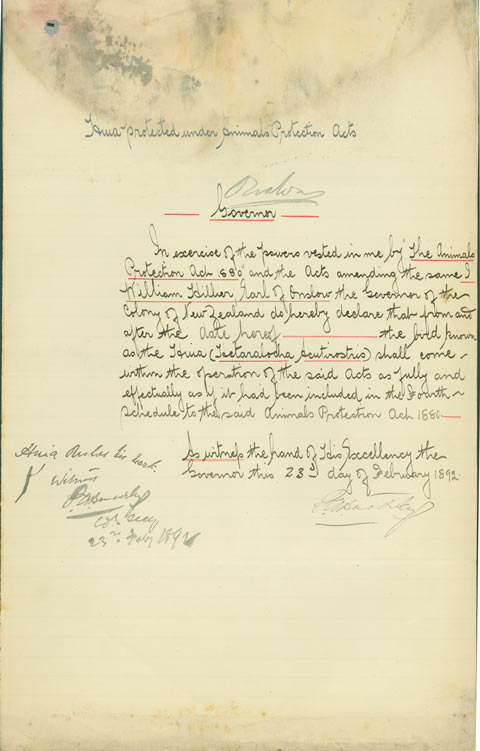 Huia protected under Animals Protection Acts
Onslow
Governor
In exercise of the powers vested in me by "The Animals
Protection Act 1880" and the Acts amending the same I
William Hillier, Earl of Onslow the Governor of the
Colony of New Zealand do hereby declare that from and
after the date hereof the bird known
as the Huia (Heteralocha Acutirostris) shall come
within the operation of the said Acts as fully and
effectually as if it had been included in the Fourth
Schedule to the said Animals Protection Act 1880.
As witness the hand of His Excellency the
Governor this 23d day of February 1892.
Huia Onslow his mark
Witness
Col. Secy
23rd Feby 1892